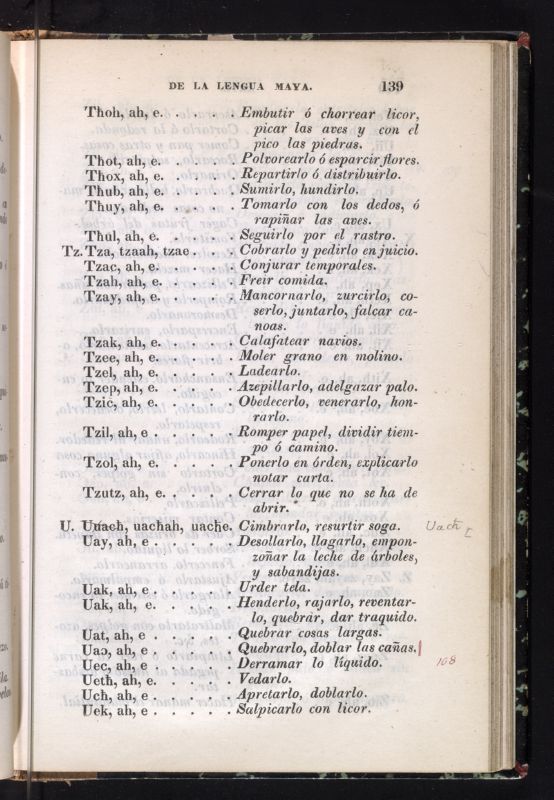 DE LA LENGUA MAYA. 139
Thoh, ah, e. . . . . Embutir ó chorrear licor,
picar las aves y con el
pico las piedras.
Thot, ah, e. . . . . Polvorearlo ó esparcir flores.
Thox, ah, e. . . . . Repartirlo ó distribuirlo.
Thub, ah, e. . . . . Sumirlo, hundirlo.
Thuy, ah, e. . . . . Tomarlo con los dedos, ó
rapiñar las aves.
Thul, ah, e. . . . . Seguirlo por el rastro.
Tz. Tza, tzaah, tzae . . Cobrarlo y pedirlo en juicio.
Tzac, ah, e. . . . . Conjurar temporales.
Tzah, ah, e. . . . . Freir comida.
Tzay, ah, e. . . . . Mancornarlo, zurcirlo, co-
serlo, juntarlo, falcar ca-
noas.
Tzak, ah, e. . . . . Calafatear navios.
Tzee, ah, e. . . . . Moler grano en molino.
Tzel, ah, e. . . . . Ladearlo.
Tzep, ah, e. . . . . Azepillarlo, adelgazar palo.
Tzic, ah, e. . . . . Obedecerlo, venerarlo, hon-
rarlo.
Tzil, ah, e . . . . . Romper papel, dividir tiem-
po ó camino.
Tzol, ah, e. . . . . Ponerlo en órden, explicarlo
notar carta.
Tzutz, ah, e. . . . . Cerrar lo que no se ha de
abrir.
U. Uuach, uachah, uache. Cimbrarlo, resurtir soga. Uach
Uay, ah, e . . . . . Desollarlo, llagarlo, empon-
zoñar la leche de árboles,
y sabandijas.
Uak, ah, e . . . . . Urder tela.
Uak, ah, e. . . . . Henderlo, rajarlo, reventar-
lo, quebrar, dar traquido.
Uat, ah, e . . . . . Quebrar cosas largas.
Uaɔ, ah, e . . . . . Quebrarlo, doblar las cañas.
Uec, ah, e . . . . . Derramar lo líquido. 168
Ueth, ah, e. . . . . Vedarlo.
Uch, ah, e . . . . . Apretarlo, doblarlo.
Uek, ah, e . . . . . Salpicarlo con licor.